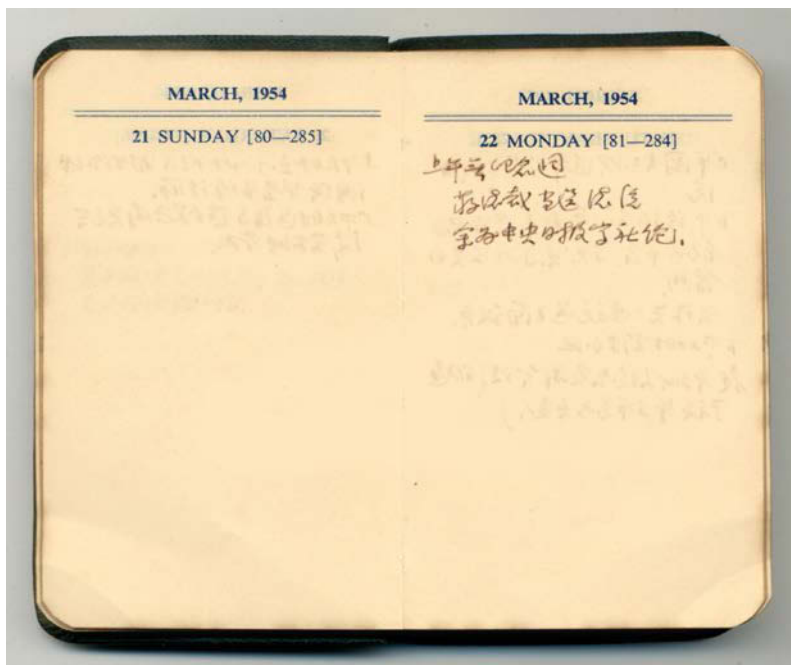 MARCH, 1954
21 SUNDAY [80—285]
MARCH, 1954
22 MONDAY [81—284]
上午 纪念週
蒋总裁当选总统
余为中央日报写社论.